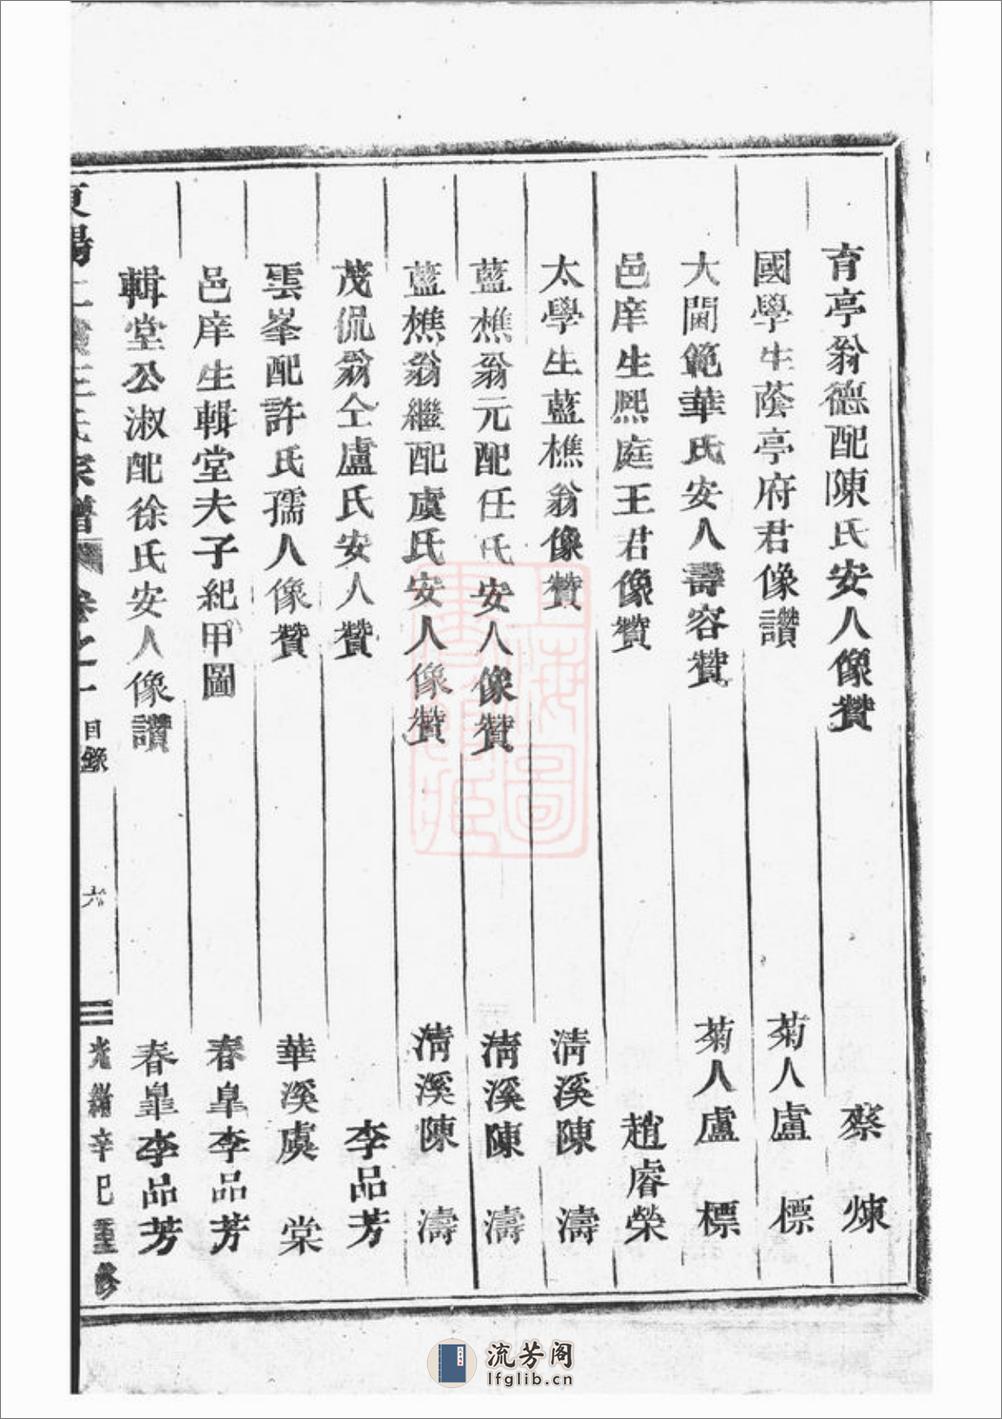 育亭翁德配陳氏安人像贊　蔡煉
國學生蔭亭府君像讚　菊人盧標
大閫範華氏安人壽容贊　菊人盧標
邑庠生熙庭王君像贊　趙睿榮
太學生藍樵翁像贊　淸溪陳濤
藍樵翁元配任氏安人像贊　淸溪陳濤
藍樵翁繼配虞氏安人像贊　淸溪陳濤
茂侃翁仝盧氏安人贊　李品芳
雲峯配許氏孺人像贊　華溪虞棠
邑庠生輯堂夫子紀甲圖　春皐李品芳
輯堂公淑配徐氏安人像讚　春皐李品芳
東陽上王氏宗譜　卷之一　目錄　六　光緒辛巳重修
上海圖書館藏
流芳阁
lfglib.cn